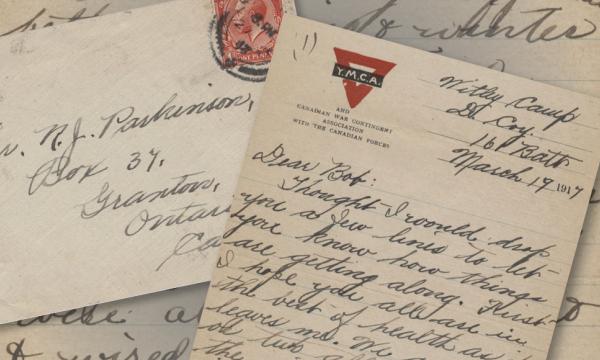 N.J. Parkinson,
Box 37.
Granton,
Ontar
Ca
PENNY
(1)
Y.M.C.A.
AND
CANADIAN WAR CONTINGENT
ASSOCIATION
WITH THE CANADIAN FORCES
Witley Camp
D. Coy.
161 Batt
March 19 1917
Dear Bob:
Thought I would drop
you a few lines to let
you know how things
are getting along. First
I hope you all are in
the best of health as
leaves me. We
the
winter
& wired